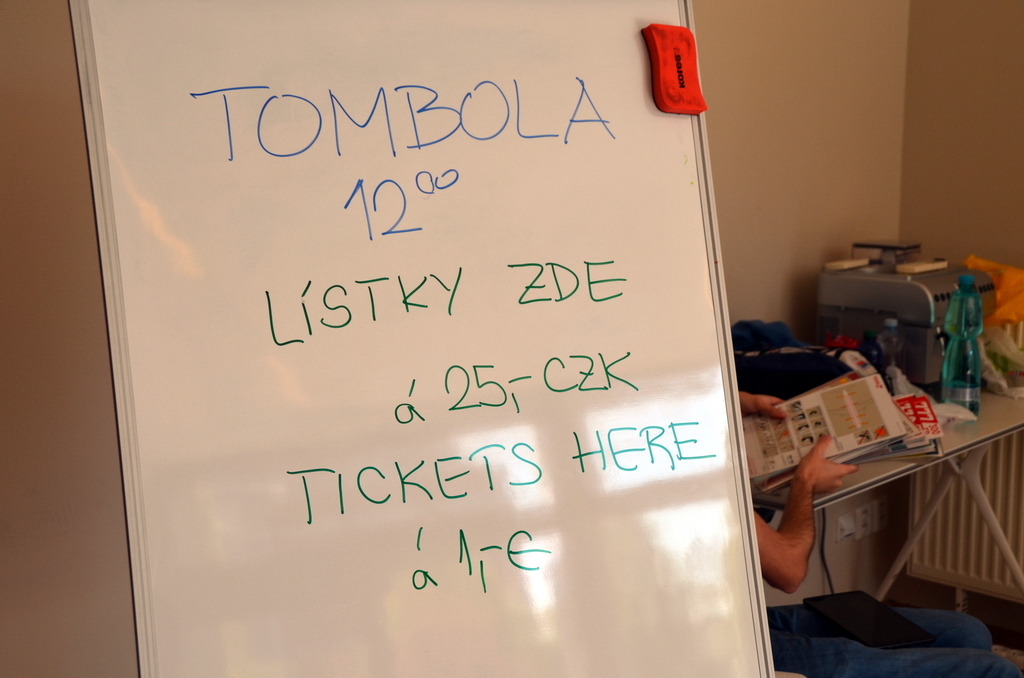 TOMBOLA
12⁰⁰
LÍSTKY ZDE
á 25,- CZK
TICKETS HERE
á 1,- €
Kores